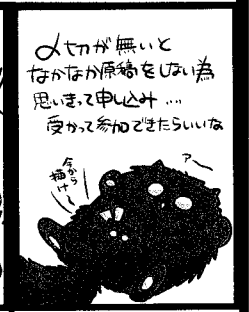 〆切が無いと
なかなか原稿をしない為
思いきって申し込み…
受かって参加できたらいいな
ア〜
今から
描け〜